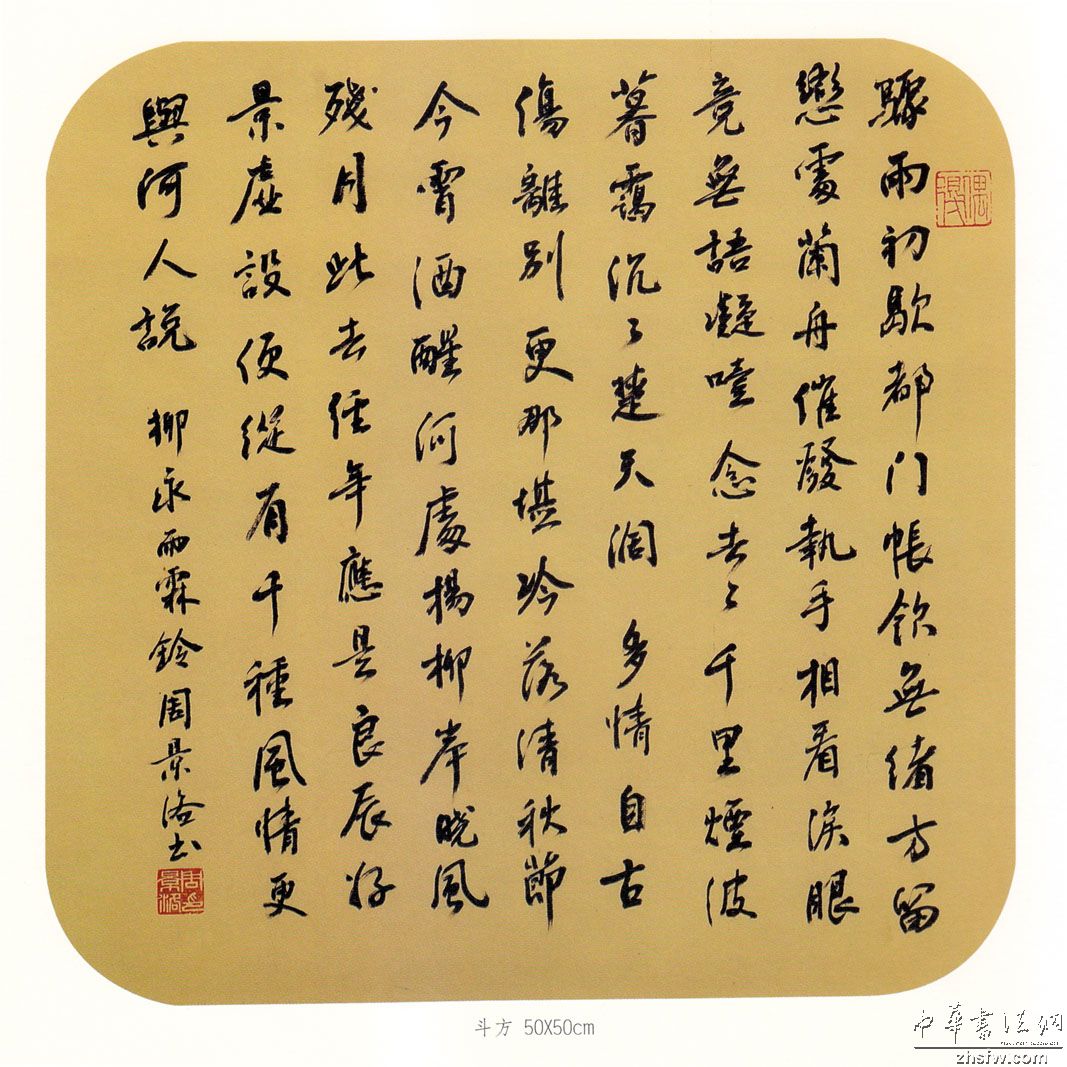 驟雨初歇都门帳飲無緒方留
戀處蘭舟催發執手相看淚眼
竟無語凝噎念去々千里煙波
暮靄沉々楚天濶多情自古
傷離別更那堪冷落清秋節
今宵酒醒何處楊柳岸曉風
殘月此去經年應是良辰好
景虛設便縱有千種風情更
與何人説 柳永雨霖鈴周景洛书
周景洛印
斗方 50X50cm
中華書法網
zhsfw.com